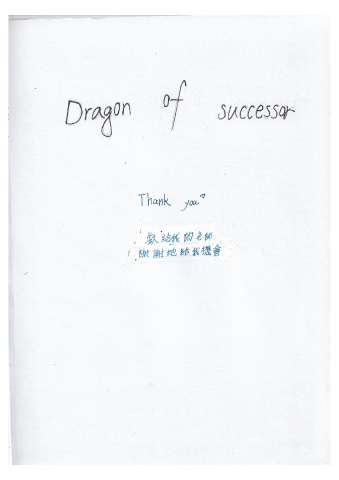 Dragon of successor
Thank you
獻給我的老師
謝謝她給我機會